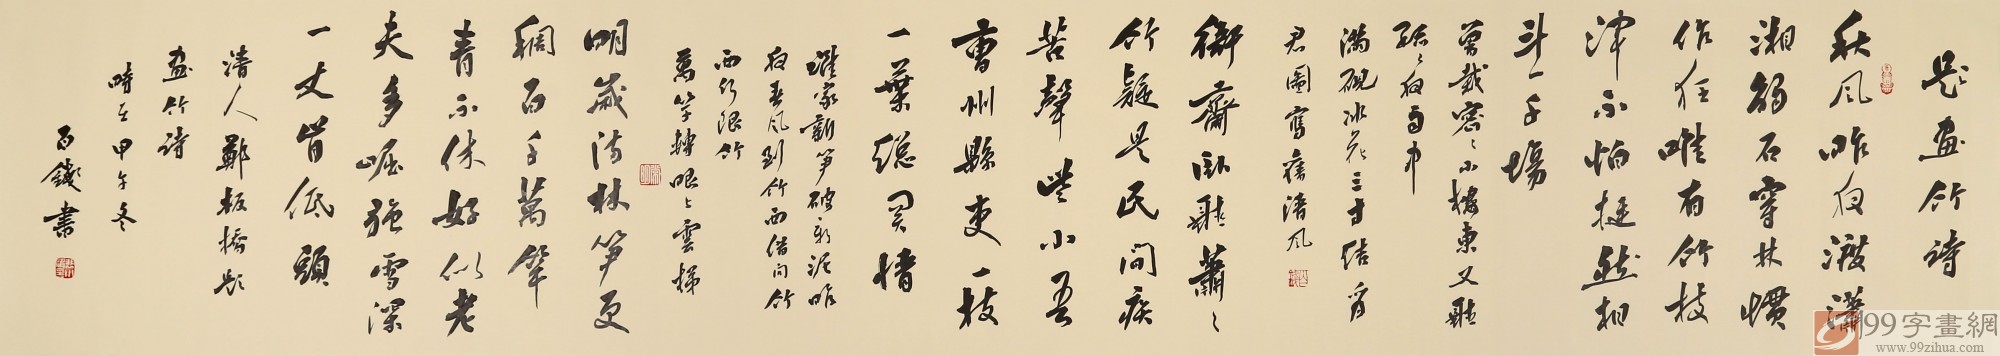 題画竹詩
秋風昨夜渡瀟
湘觸石穿林慣
作狂唯有竹枝
渾不怕挺然相
斗一千場
曾栽密密小樓東又聽
疏疏夜雨中
滿硯冰花三寸結為
君圖寫舊清風
衙齋臥聽蕭蕭
竹疑是民間疾
苦聲些小吾
曹州縣吏一枝
一葉總關情
誰家新笋破新泥昨
夜春風到竹西借問竹
西何限竹
萬竿轉眼上雲梯
明歲防林笋更
稠百千萬竿
青不休好似老
夫多倔強雪深
一丈肯低頭
清人鄭板橋題
画竹詩
時在甲午冬
百 書
99字畫網
www.99zihua.com